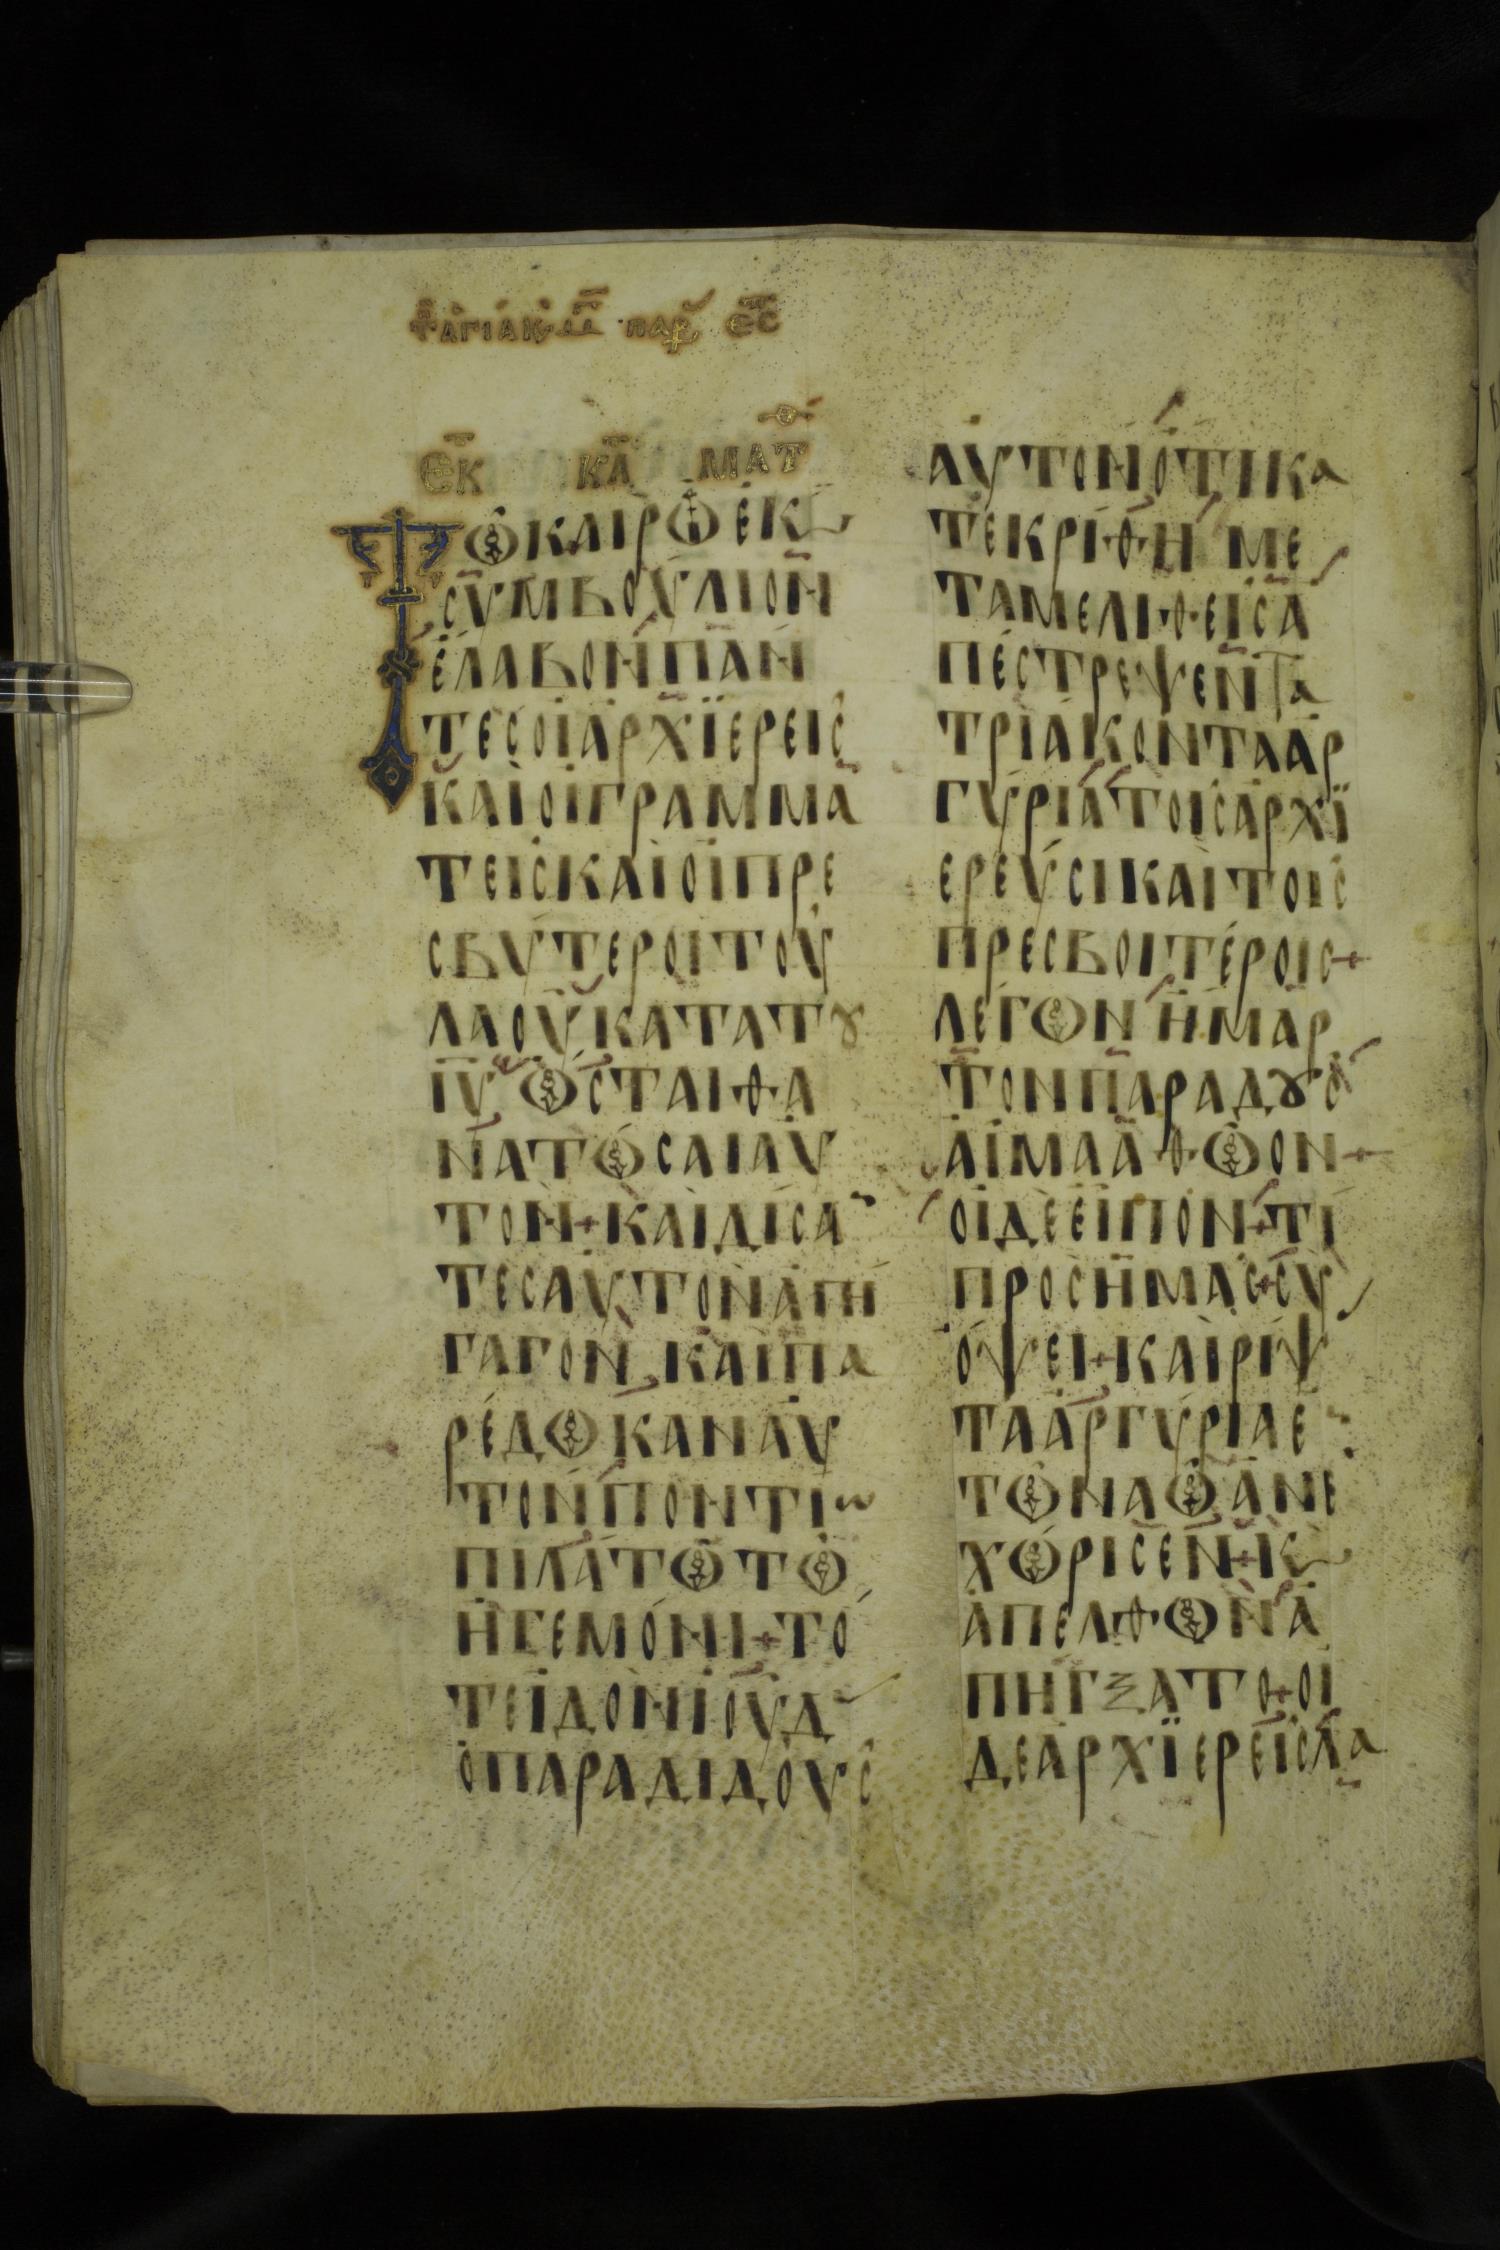 ΕΚ ΚΑ ΜΑΤ
ΤΩ ΚΑΙΡΩ ΕΚ
ΣΥΜΒΟΥΛΙΟΝ
ΕΛΑΒΟΝ ΠΑΝ
ΤΕΣ ΟΙ ΑΡΧΪΕΡΕΙΣ
ΚΑΙ ΟΙ ΓΡΑΜΜΑ
ΤΕΙΣ ΚΑΙ ΟΙ ΠΡΕ
ΣΒΥΤΕΡΟΙ ΤΟΥ
ΛΑΟΥ ΚΑΤΑ ΤΟΥ
ΙΥ ΩΣΤΑΙ ΘΑ
ΝΑΤΩΣΑΙ ΑΥ
ΤΟΝ + ΚΑΙ ΔΙΣΑ
ΤΕΣ ΑΥΤΟΝ ΑΠΗ
ΓΑΓΟΝ ΚΑΙ ΠΑ
ΡΕΔΩΚΑΝ ΑΥ
ΤΟΝ ΠΟΝΤΙω
ΠΙΛΑΤΩ ΤΩ
ΗΓΕΜΟΝΙ + ΤΟ
ΤΕ ΙΔΟΝ ΙΟΥΔ
Ο ΠΑΡΑΔΙΔΟΥΣ
ΑΥΤΟΝ ΟΤΙ ΚΑ
ΤΕΚΡΙΘΗ ΜΕ
ΤΑΜΕΛΙΘΕΙΣ Α
ΠΕΣΤΡΕΨΕΝ ΤΑ
ΤΡΙΑΚΟΝΤΑ ΑΡ
ΓΥΡΙΑ ΤΟΙΣ ΑΡΧΪ
ΕΡΕΥΣΙ ΚΑΙ ΤΟΙΣ
ΠΡΕΣΒΟΙΤΕΡΟΙΣ +
ΛΕΓΩΝ ΗΜΑΡ
ΤΟΝ ΠΑΡΑΔΟΥΣ
ΑΙΜΑ ΑΘΩΟΝ +
ΟΙ ΔΕ ΕΙΠΟΝ + ΤΙ
ΠΡΟΣ ΗΜΑΣ + ΣΥ
ΟΨΕΙ + ΚΑΙ ΡΙΨ
ΤΑ ΑΡΓΥΡΙΑ Ε
ΤΩ ΝΑΩ ΑΝΕ
ΧΩΡΙΣΕΝ + Κ
ΑΠΕΛΘΩΝ Α
ΠΗΓΞΑΤΟ + ΟΙ
ΔΕ ΑΡΧΪΕΡΕΙΣ ΛΑ